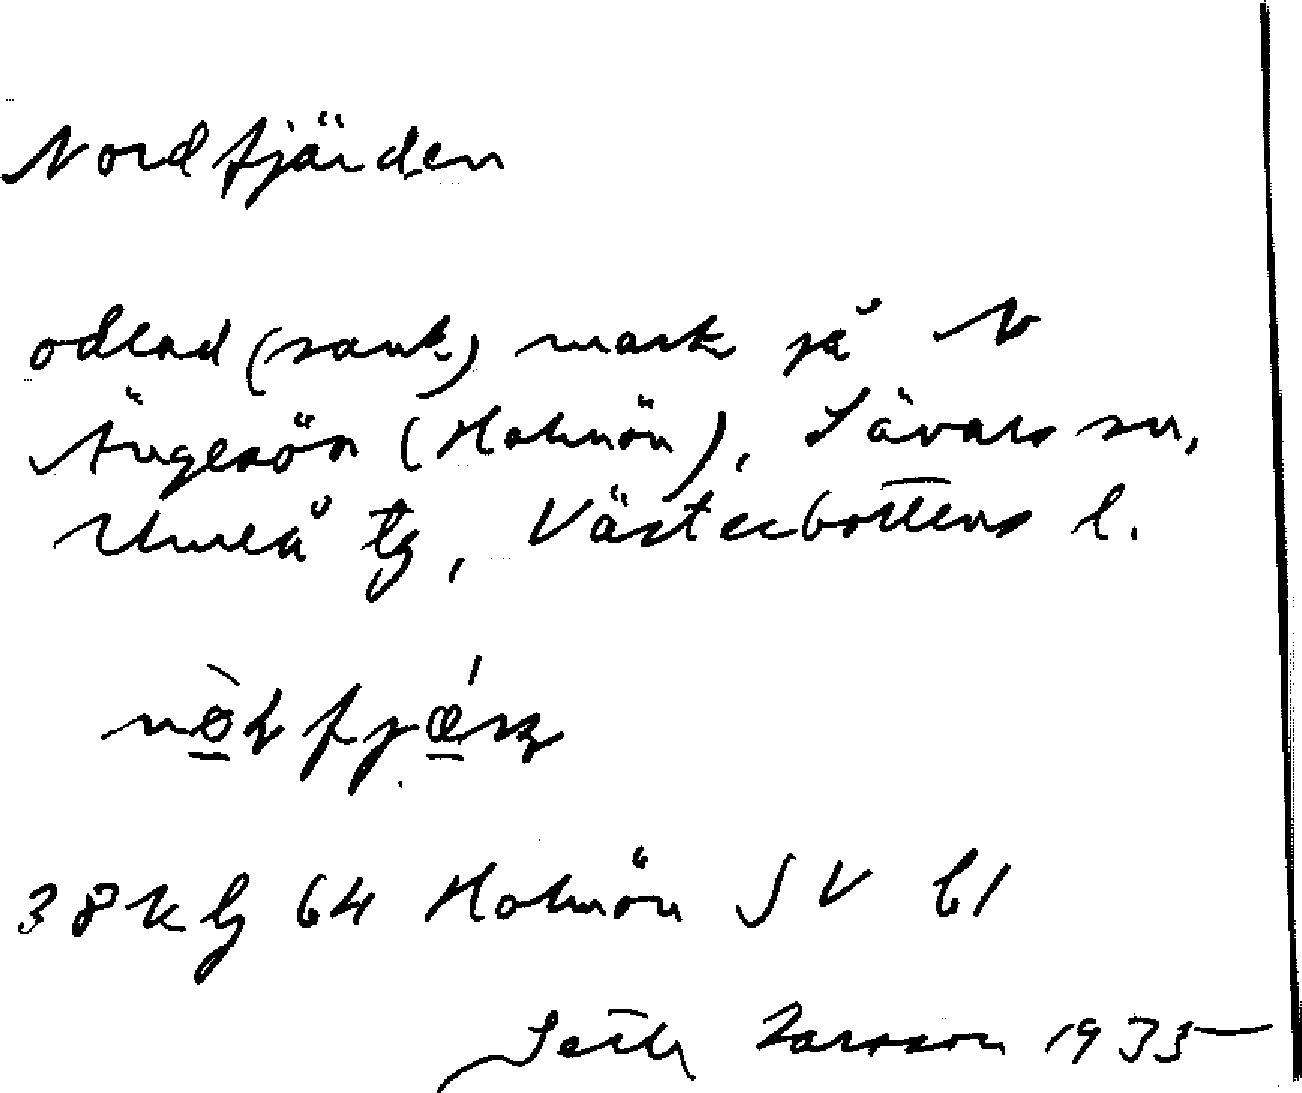 Nordfjärden
odlad (sank) mark på N
Ängesön (Holmön), Sävars sn,
Umeå tg, Västerbottens l.
38 klg 64 Holmön SV bl
Seth Larsson 1935